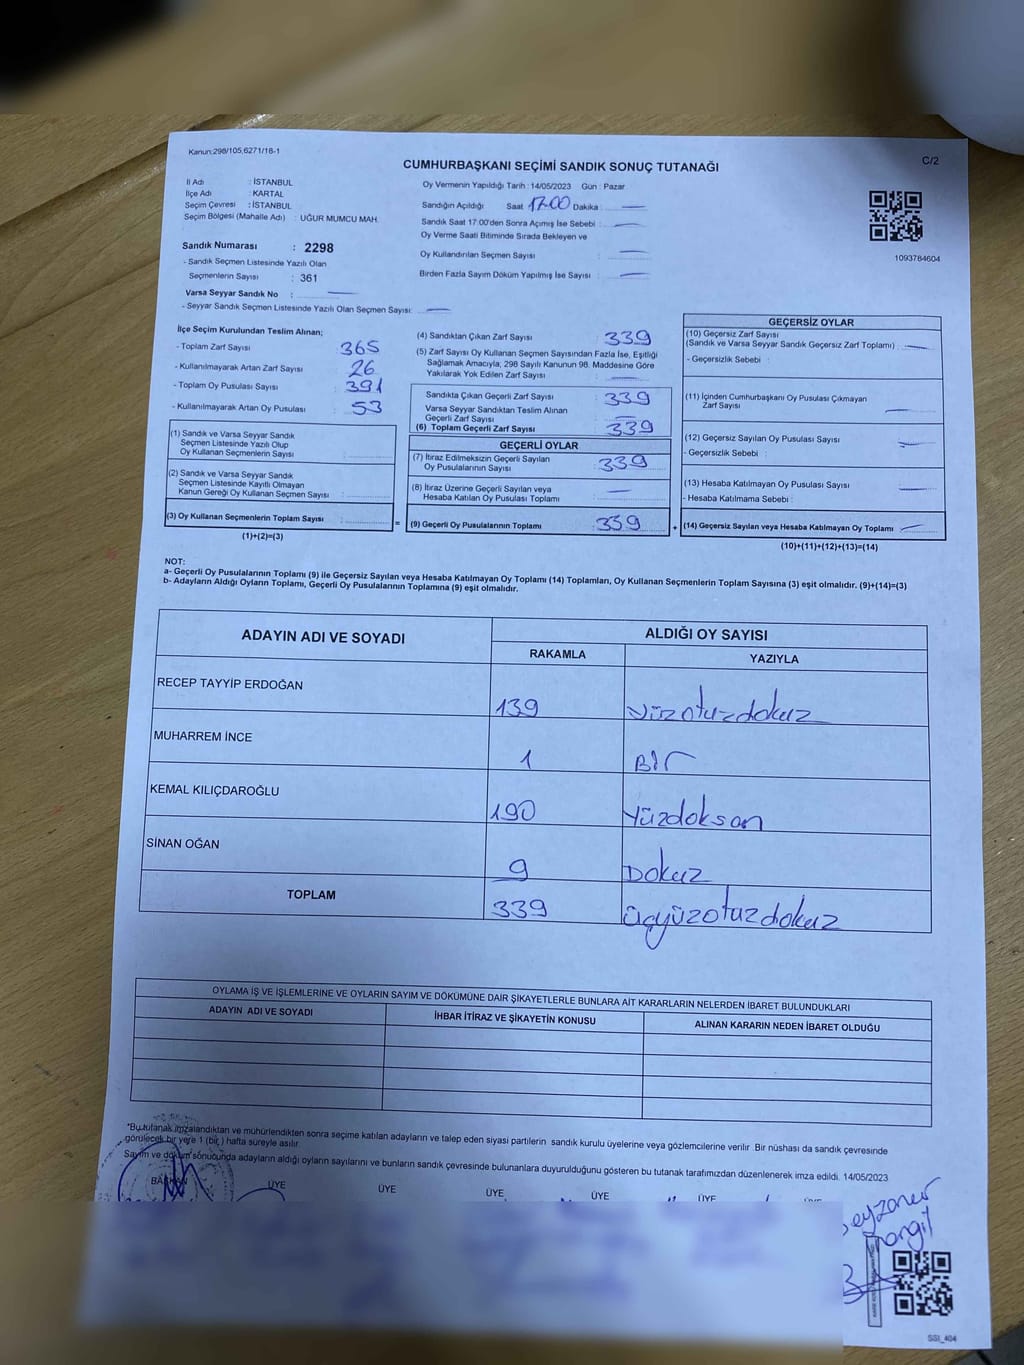 Kanun:298/105,6271/18-1
CUMHURBAŞKANI SEÇİMİ SANDIK SONUÇ TUTANAĞI
C/2
İl Adı : İSTANBUL
İlçe Adı : KARTAL
Seçim Çevresi : İSTANBUL
Seçim Bölgesi (Mahalle Adı) : UĞUR MUMCU MAH.
Oy Vermenin Yapıldığı Tarih : 14/05/2023 Gün : Pazar
Sandığın Açıldığı Saat 17:00 Dakika : —
Sandık Saat 17:00'den Sonra Açımış İse Sebebi : —
Oy Verme Saati Bitiminde Sırada Bekleyen ve
Oy Kullandırılan Seçmen Sayısı : —
Birden Fazla Sayım Döküm Yapılmış İse Sayısı : —
1093784604
Sandık Numarası : 2298
- Sandık Seçmen Listesinde Yazılı Olan
Seçmenlerin Sayısı : 361
Varsa Seyyar Sandık No : —
- Seyyar Sandık Seçmen Listesinde Yazılı Olan Seçmen Sayısı: —
İlçe Seçim Kurulundan Teslim Alınan;
- Toplam Zarf Sayısı 365
- Kullanılmayarak Artan Zarf Sayısı : 26
- Toplam Oy Pusulası Sayısı : 391
- Kullanılmayarak Artan Oy Pusulası : 53
(1) Sandık ve Varsa Seyyar Sandık
Seçmen Listesinde Yazılı Olup
Oy Kullanan Seçmenlerin Sayısı :
(2) Sandık ve Varsa Seyyar Sandık
Seçmen Listesinde Kayıtlı Olmayan
Kanun Gereği Oy Kullanan Seçmen Sayısı :
(3) Oy Kullanan Seçmenlerin Toplam Sayısı :
(1)+(2)=(3)
(4) Sandıktan Çıkan Zarf Sayısı : 339
(5) Zarf Sayısı Oy Kullanan Seçmen Sayısından Fazla İse, Eşitliği
Sağlamak Amacıyla, 298 Sayılı Kanunun 98. Maddesine Göre
Yakılarak Yok Edilen Zarf Sayısı : —
Sandıkta Çıkan Geçerli Zarf Sayısı : 339
Varsa Seyyar Sandıktan Teslim Alınan
Geçerli Zarf Sayısı : —
(6) Toplam Geçerli Zarf Sayısı : 339
GEÇERLİ OYLAR
(7) İtiraz Edilmeksizin Geçerli Sayılan
Oy Pusulalarının Sayısı : 339
(8) İtiraz Üzerine Geçerli Sayılan veya
Hesaba Katılan Oy Pusulası Toplamı : —
= (9) Geçerli Oy Pusulalarının Toplamı : 339
GEÇERSİZ OYLAR
(10) Geçersiz Zarf Sayısı
(Sandık ve Varsa Seyyar Sandık Geçersiz Zarf Toplamı) : —
- Geçersizlik Sebebi :
(11) İçinden Cumhurbaşkanı Oy Pusulası Çıkmayan
Zarf Sayısı : —
(12) Geçersiz Sayılan Oy Pusulası Sayısı : —
- Geçersizlik Sebebi :
(13) Hesaba Katılmayan Oy Pusulası Sayısı : —
- Hesaba Katılmama Sebebi :
+ (14) Geçersiz Sayılan veya Hesaba Katılmayan Oy Toplamı : —
(10)+(11)+(12)+(13)=(14)
NOT:
a- Geçerli Oy Pusulalarının Toplamı (9) ile Geçersiz Sayılan veya Hesaba Katılmayan Oy Toplamı (14) Toplamları, Oy Kullanan Seçmenlerin Toplam Sayısına (3) eşit olmalıdır. (9)+(14)=(3)
b- Adayların Aldığı Oyların Toplamı, Geçerli Oy Pusulalarının Toplamına (9) eşit olmalıdır.
ADAYIN ADI VE SOYADI ALDIĞI OY SAYISI
RAKAMLA YAZIYLA
RECEP TAYYİP ERDOĞAN 139 Yüzotuzdokuz
MUHARREM İNCE 1 BİR
KEMAL KILIÇDAROĞLU 190 Yüzdoksan
SİNAN OĞAN 9 Dokuz
TOPLAM 339 üçyüzotuzdokuz
OYLAMA İŞ VE İŞLEMLERİNE VE OYLARIN SAYIM VE DÖKÜMÜNE DAİR ŞİKAYETLERLE BUNLARA AİT KARARLARIN NELERDEN İBARET BULUNDUKLARI
ADAYIN ADI VE SOYADI İHBAR İTİRAZ VE ŞİKAYETİN KONUSU ALINAN KARARIN NEDEN İBARET OLDUĞU
*Bu tutanak imzalandıktan ve mühürlendikten sonra seçime katılan adayların ve talep eden siyasi partilerin sandık kurulu üyelerine veya gözlemcilerine verilir. Bir nüshası da sandık çevresinde
görülecek bir yere 1 (bir) hafta süreyle asılır.
Sayım ve döküm sonucunda adayların aldığı oyların sayılarını ve bunların sandık çevresinde bulunanlara duyurulduğunu gösteren bu tutanak tarafımızdan düzenlenerek imza edildi. 14/05/2023
BAŞKAN ÜYE ÜYE ÜYE ÜYE ÜYE ÜYE
SSI_404